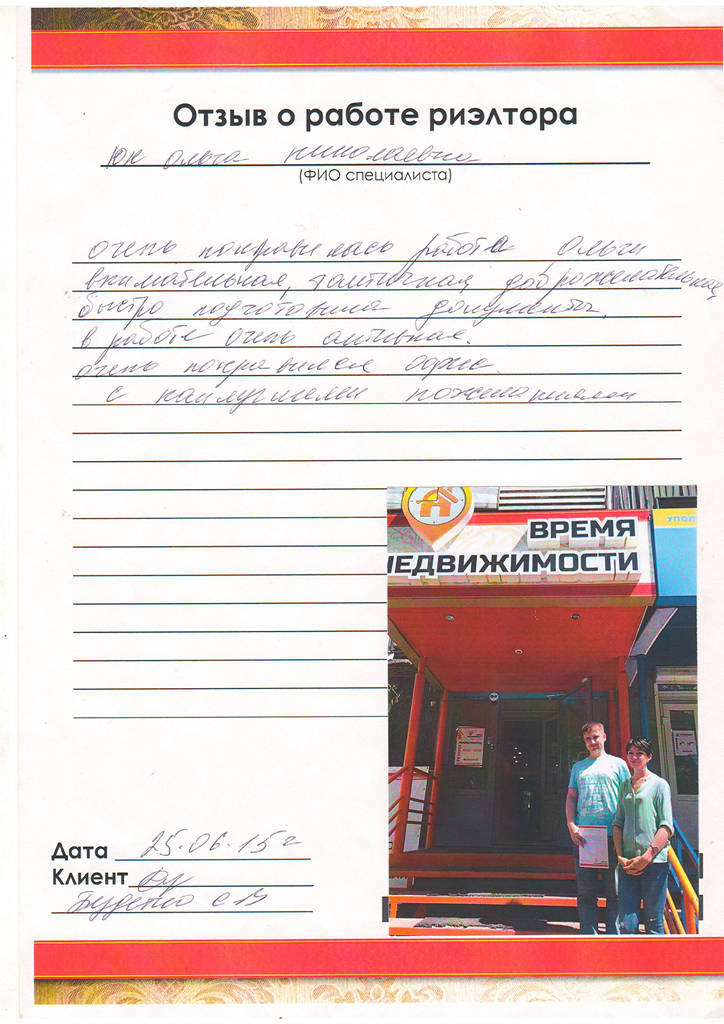 Отзыв о работе риэлтора
Юк Ольга Николаевна
(ФИО специалиста)
очень понравилась работа Ольги
внимательная, тактичная, доброжелательная,
быстро подготовила документы,
в работе очень активная.
очень понравился офис.
с наилучшими пожеланиями
ВРЕМЯ
НЕДВИЖИМОСТИ
УПОЛ
Дата 25.06.15г
Клиент
С В